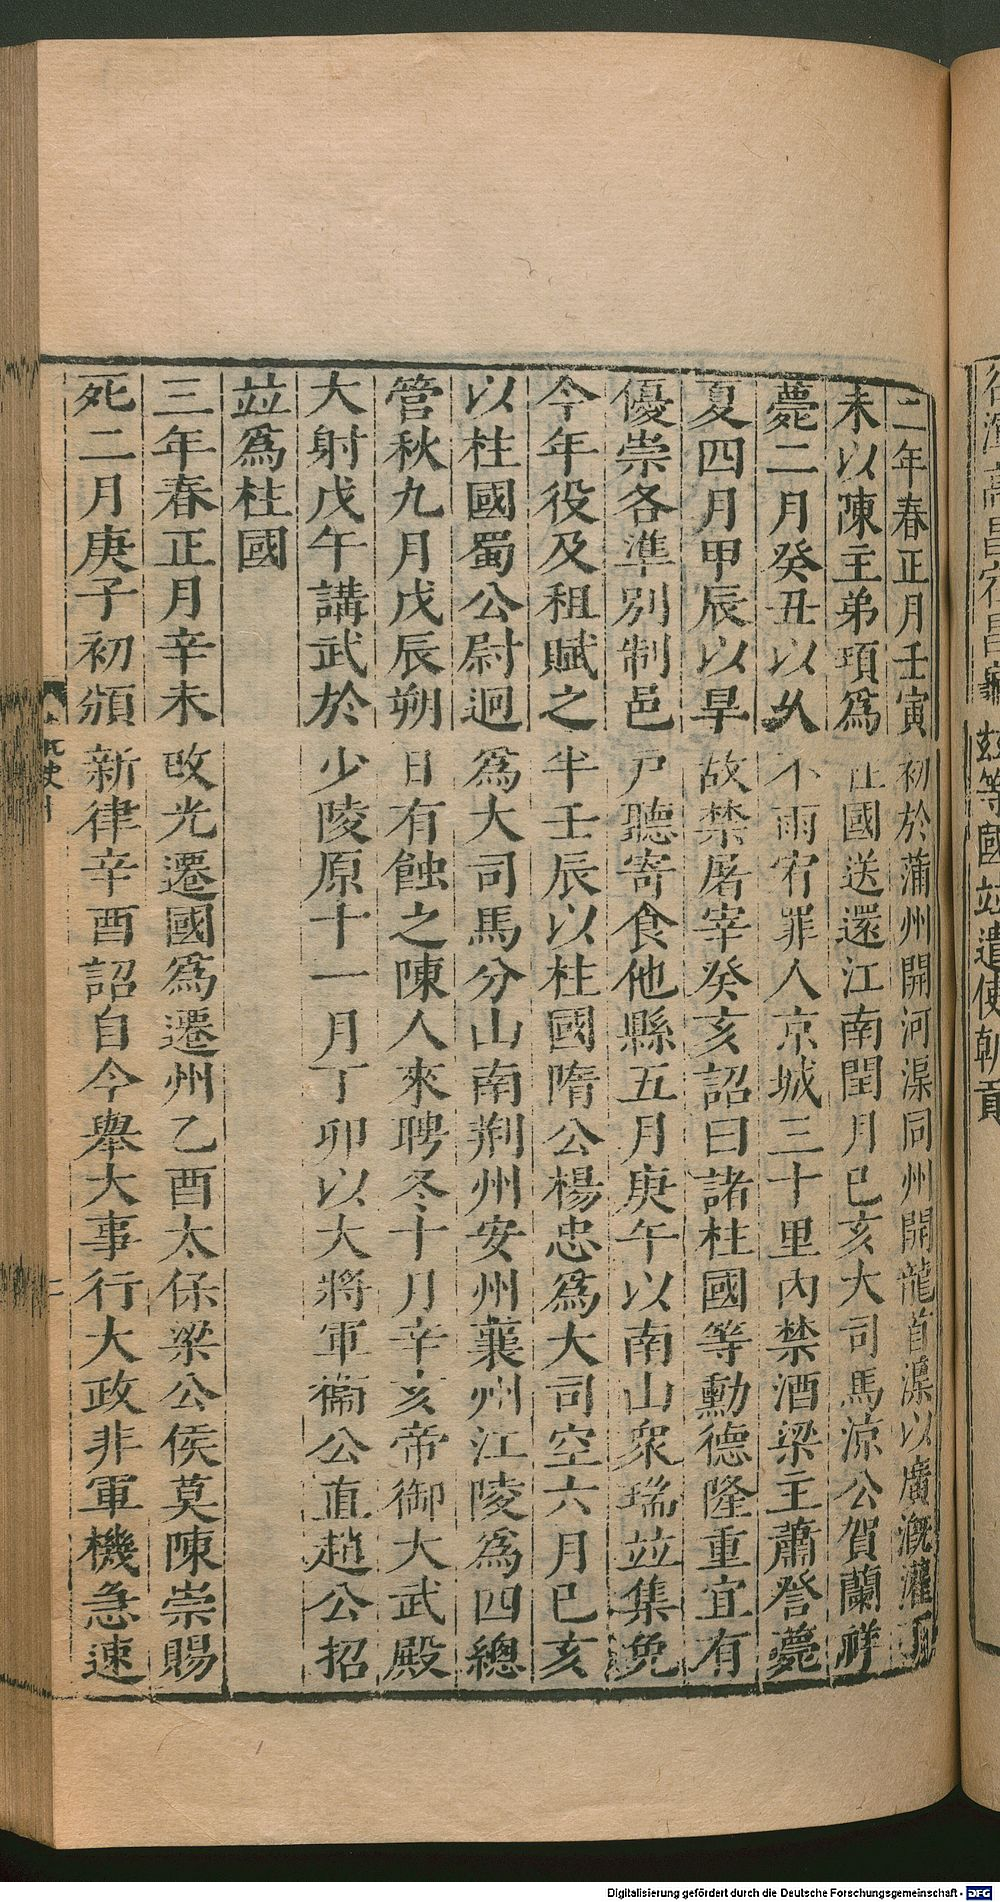 茲等國竝遣使朝貢
二年春正月壬寅初於蒲州開河渠同州開龍首渠以廣溉灌丁
未以陳主弟頊爲柱國送還江南閏月己亥大司馬涼公賀蘭祥
薨二月癸丑以久不雨宥罪人京城三十里內禁酒梁主蕭詧薨
夏四月甲辰以旱故禁屠宰癸亥詔曰諸柱國等勳德隆重宜有
優崇各準別制邑戸聽寄食他縣五月庚午以南山衆瑞竝集免
今年役及租賦之半壬辰以柱國隋公楊忠爲大司空六月己亥
以柱國蜀公尉迥爲大司馬分山南荆州安州襄州江陵爲四總
管秋九月戊辰朔日有蝕之陳人來聘冬十月辛亥帝御大武殿
大射戊午講武於少陵原十一月丁卯以大將軍衞公直趙公招
竝爲柱國
三年春正月辛未改光遷國爲遷州乙酉太保梁公侯莫陳崇賜
死二月庚子初頒新律辛酉詔自今舉大事行大政非軍機急速
Digitalisierung gefördert durch die Deutsche Forschungsgemeinschaft - DFG